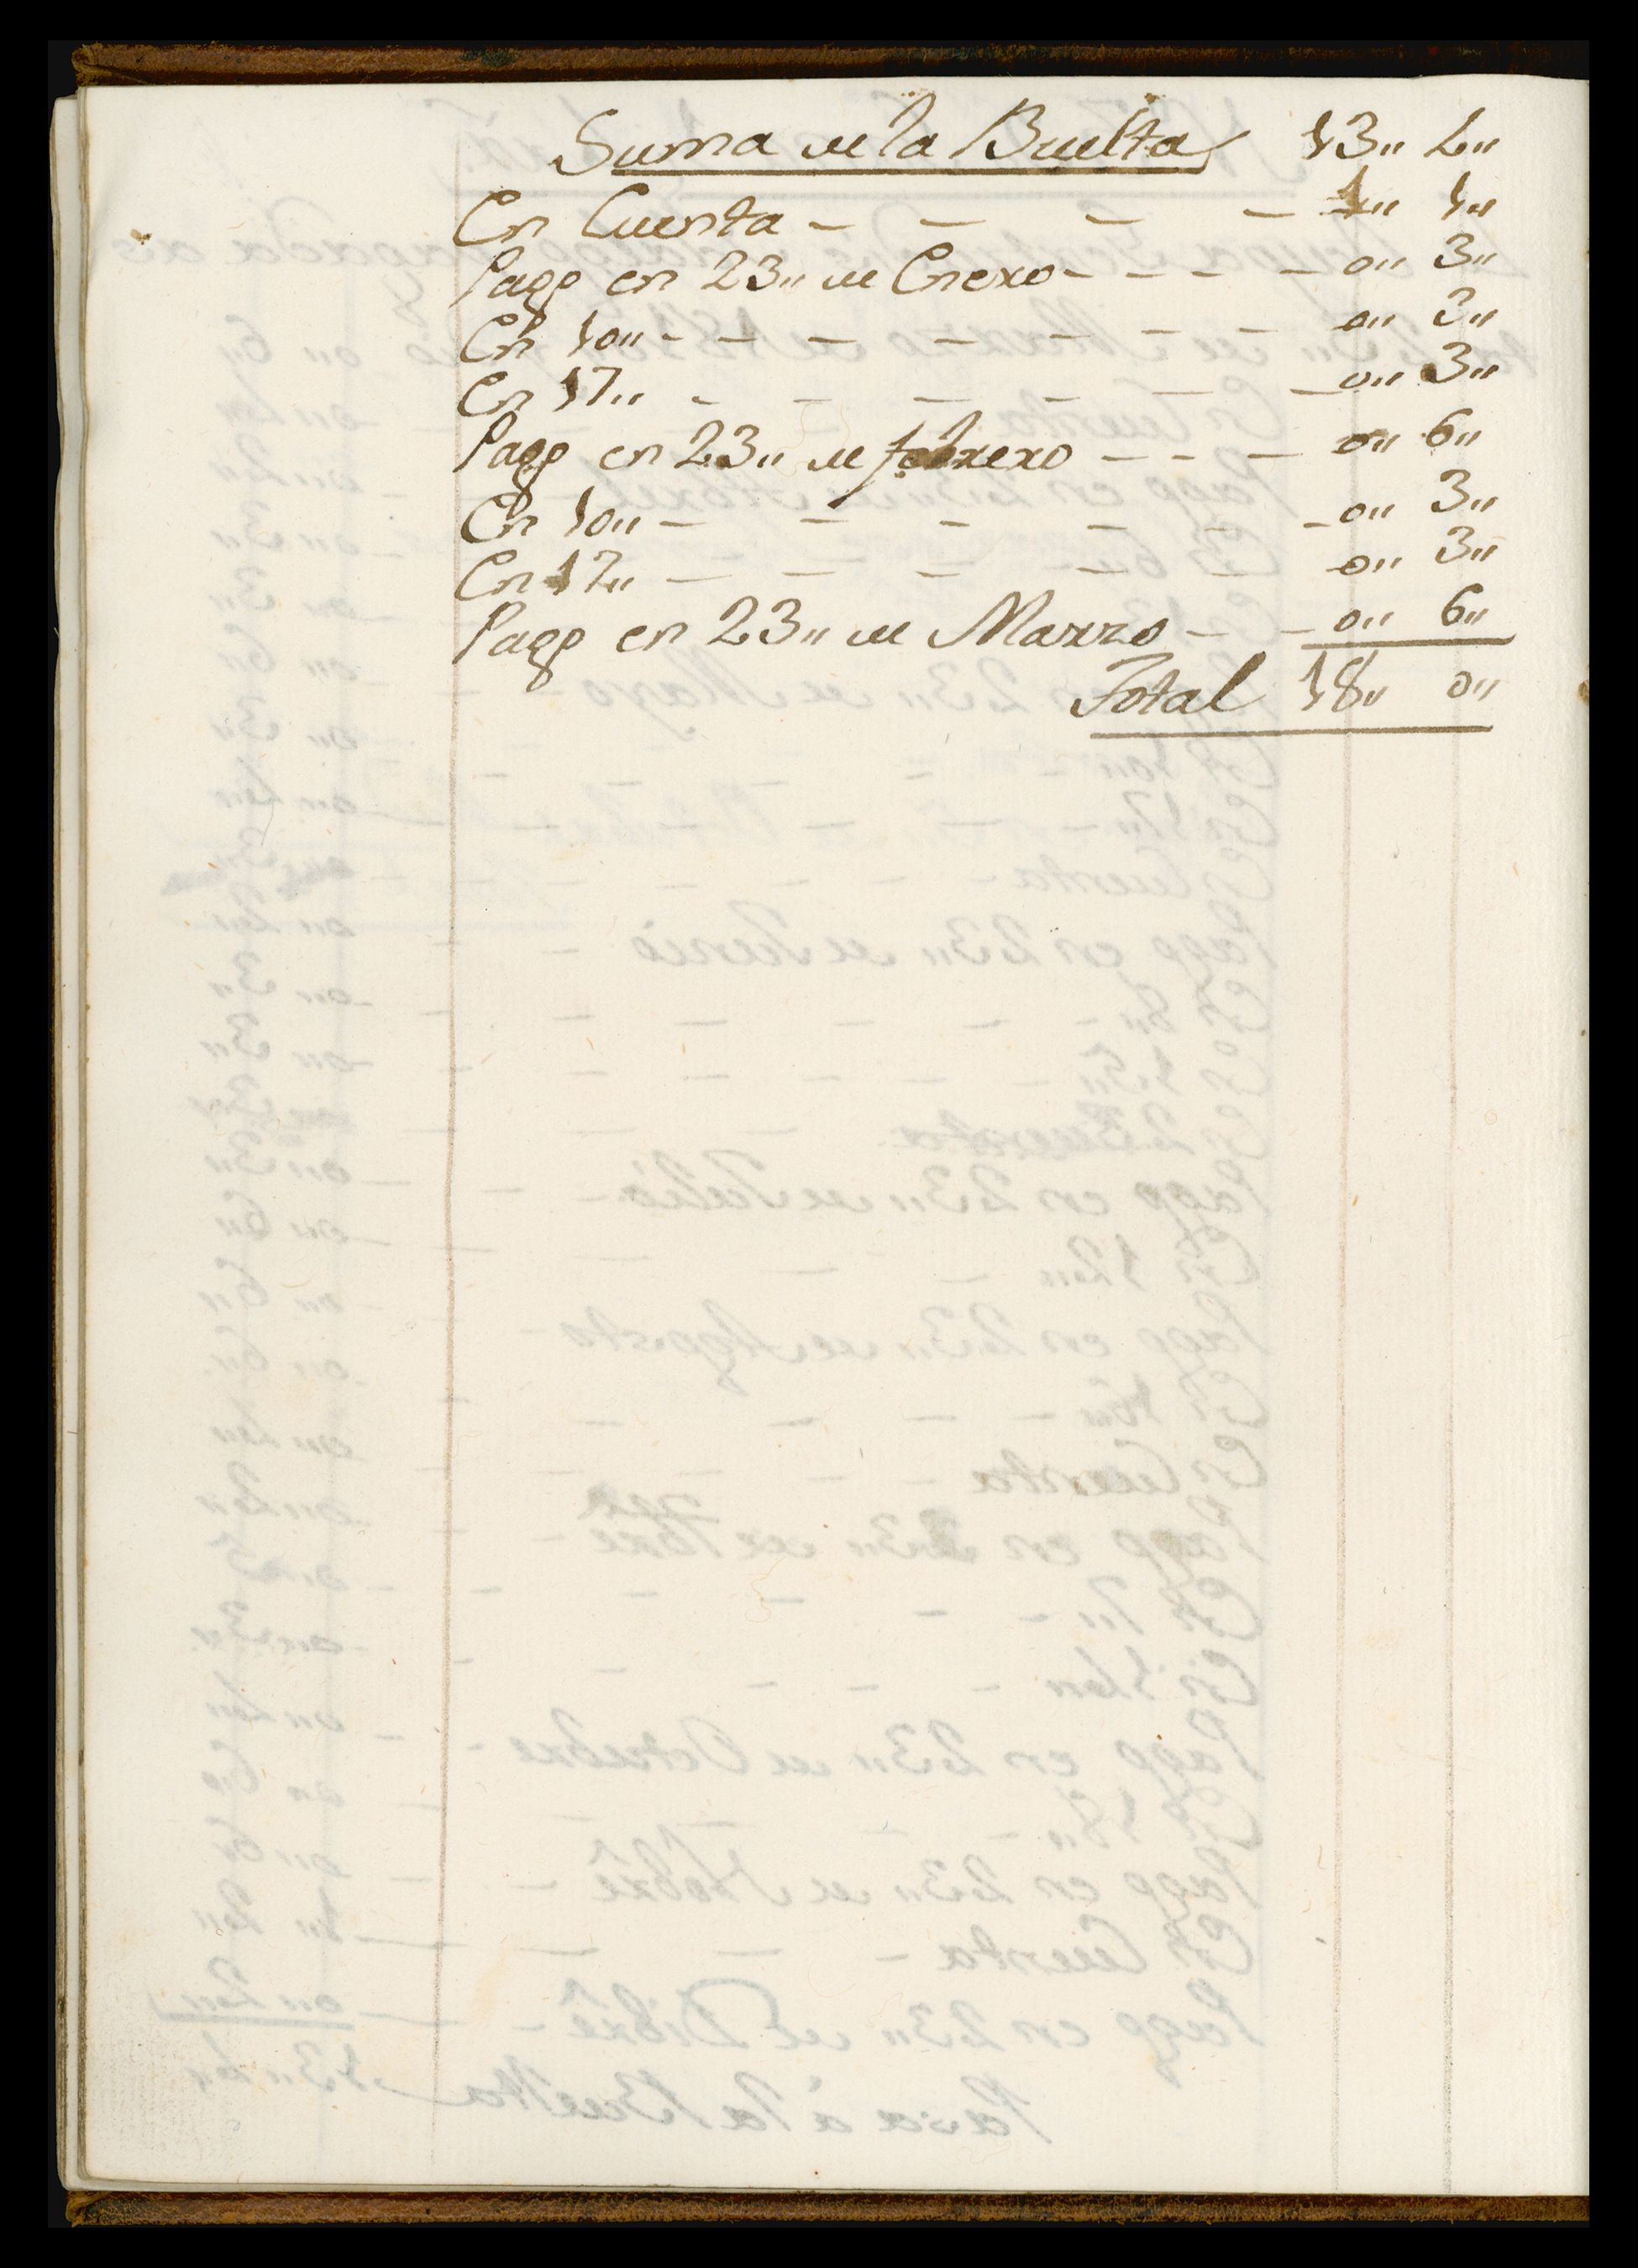 Suma de la Buelta 13" 4"
En Cuenta - - - - 1" 1"
Pago en 23" de Enero - - - - 0" 3"
En 10" - - - - - - 0" 3"
En 17" - - - - - - 0" 3"
Pago en 23" de febrero - - - 0" 6"
En 10" - - - - - - 0" 3"
En 12" - - - - - 0" 3"
Pago en 23" de Marzo - - 0" 6"
Total 18" 0"